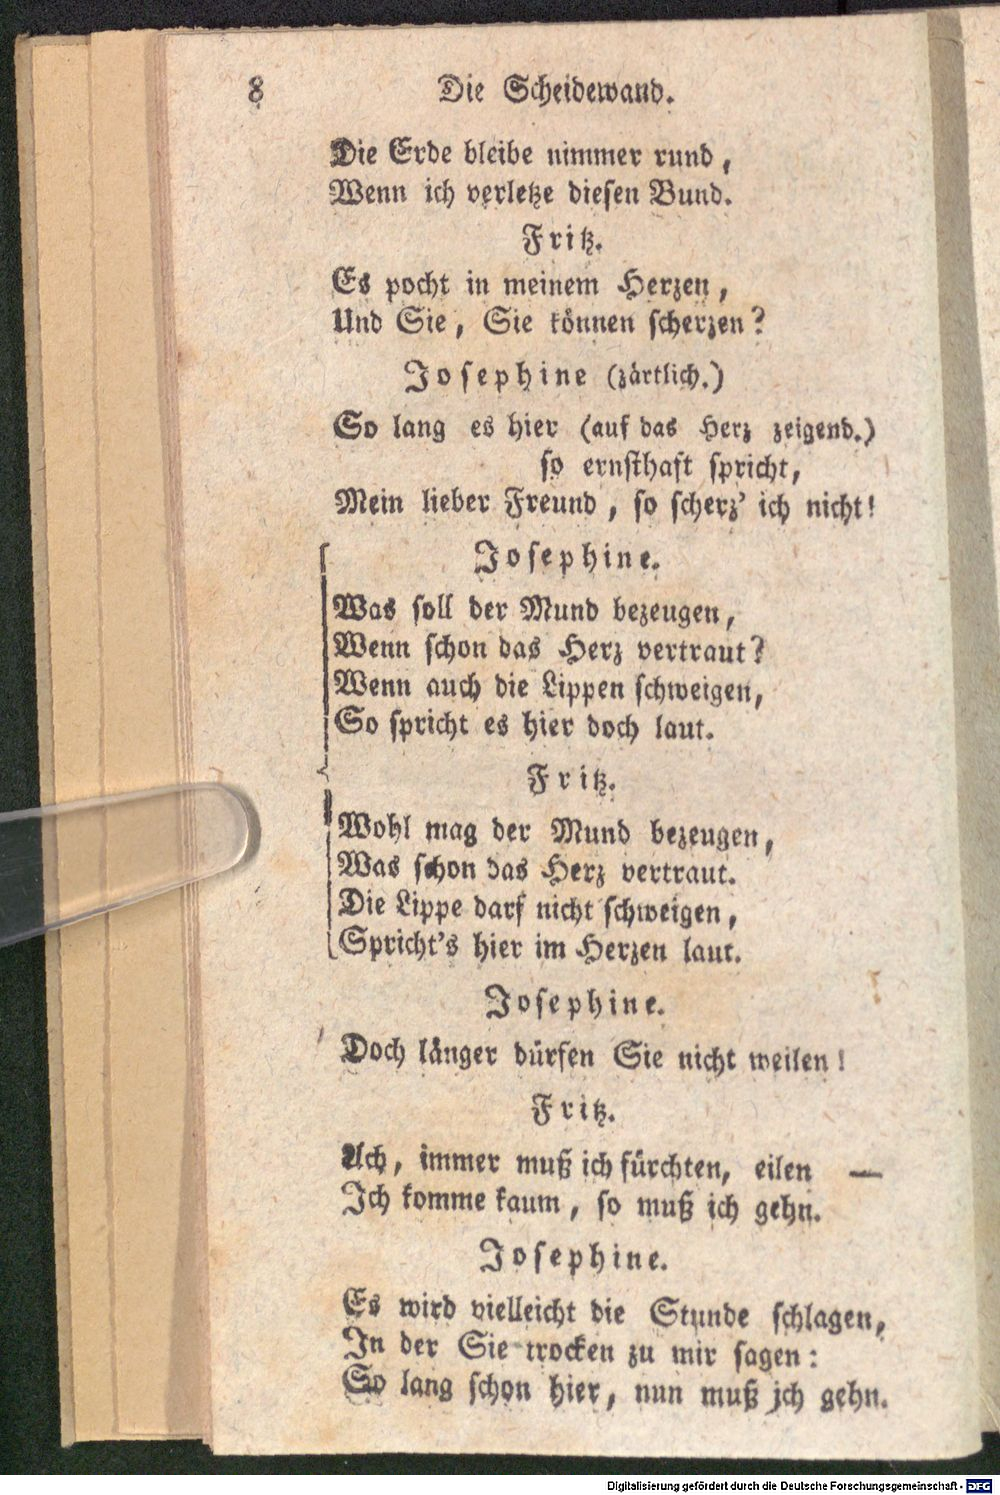 8 Die Scheidewand.
Die Erde bleibe nimmer rund,
Wenn ich verletze diesen Bund.
Fritz.
Es pocht in meinem Herzen,
Und Sie, Sie können scherzen?
Josephine (zärtlich.)
So lang es hier (auf das Herz zeigend.)
so ernsthaft spricht,
Mein lieber Freund, so scherz' ich nicht!
Josephine.
Was soll der Mund bezeugen,
Wenn schon das Herz vertraut?
Wenn auch die Lippen schweigen,
So spricht es hier doch laut.
Fritz.
Wohl mag der Mund bezeugen,
Was schon das Herz vertraut.
Die Lippe darf nicht schweigen,
Spricht's hier im Herzen laut.
Josephine.
Doch länger dürfen Sie nicht weilen!
Fritz.
Ach, immer muß ich fürchten, eilen —
Ich komme kaum, so muß ich gehn.
Josephine.
Es wird vielleicht die Stunde schlagen,
In der Sie trocken zu mir sagen:
So lang schon hier, nun muß ich gehn.
Digitalisierung gefördert durch die Deutsche Forschungsgemeinschaft - DFG